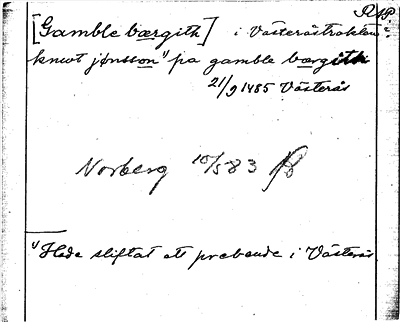 RAp
[Gamble bærgith] i Västeråstrakten?
knwt jønsson 1) pa gamble bærgith
21/9 1485 Västerås
Norberg 10/5 83
1) Hade stiftat ett prebende i Västerås